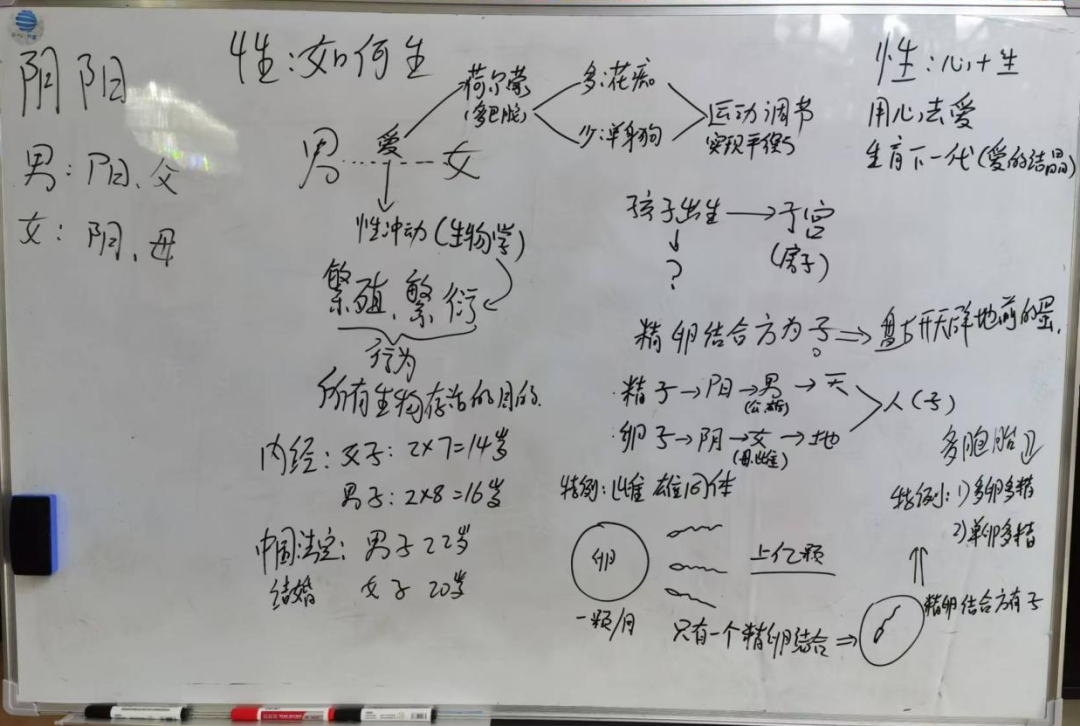 阴 阳
男：阳、父
女：阴、母
性：如何生
荷尔蒙
(多巴胺)
多：花痴
少：单身狗
运动调节
实现平衡
男……爱……女
性冲动(生物学)
繁殖、繁衍
行为
所有生物存活的目的.
内经：女子：2×7=14岁
男子：2×8=16岁
中国法定：男子 22岁
结婚 女子 20岁
性：心+生
用心去爱
生育下一代(爱的结晶)
孩子出生→子宫
(房子)
↓
?
精卵结合方为子。⇒盘古开天辟地前的蛋.
精子→阳→男→天
(公.雄)
卵子→阴→女→地
(母.雌)
人(子)
特例：雌雄同体
多胞胎
特例：1)多卵多精
2)单卵多精
卵
一颗/月
上亿颗
只有一个精卵结合⇒
精卵结合方有子